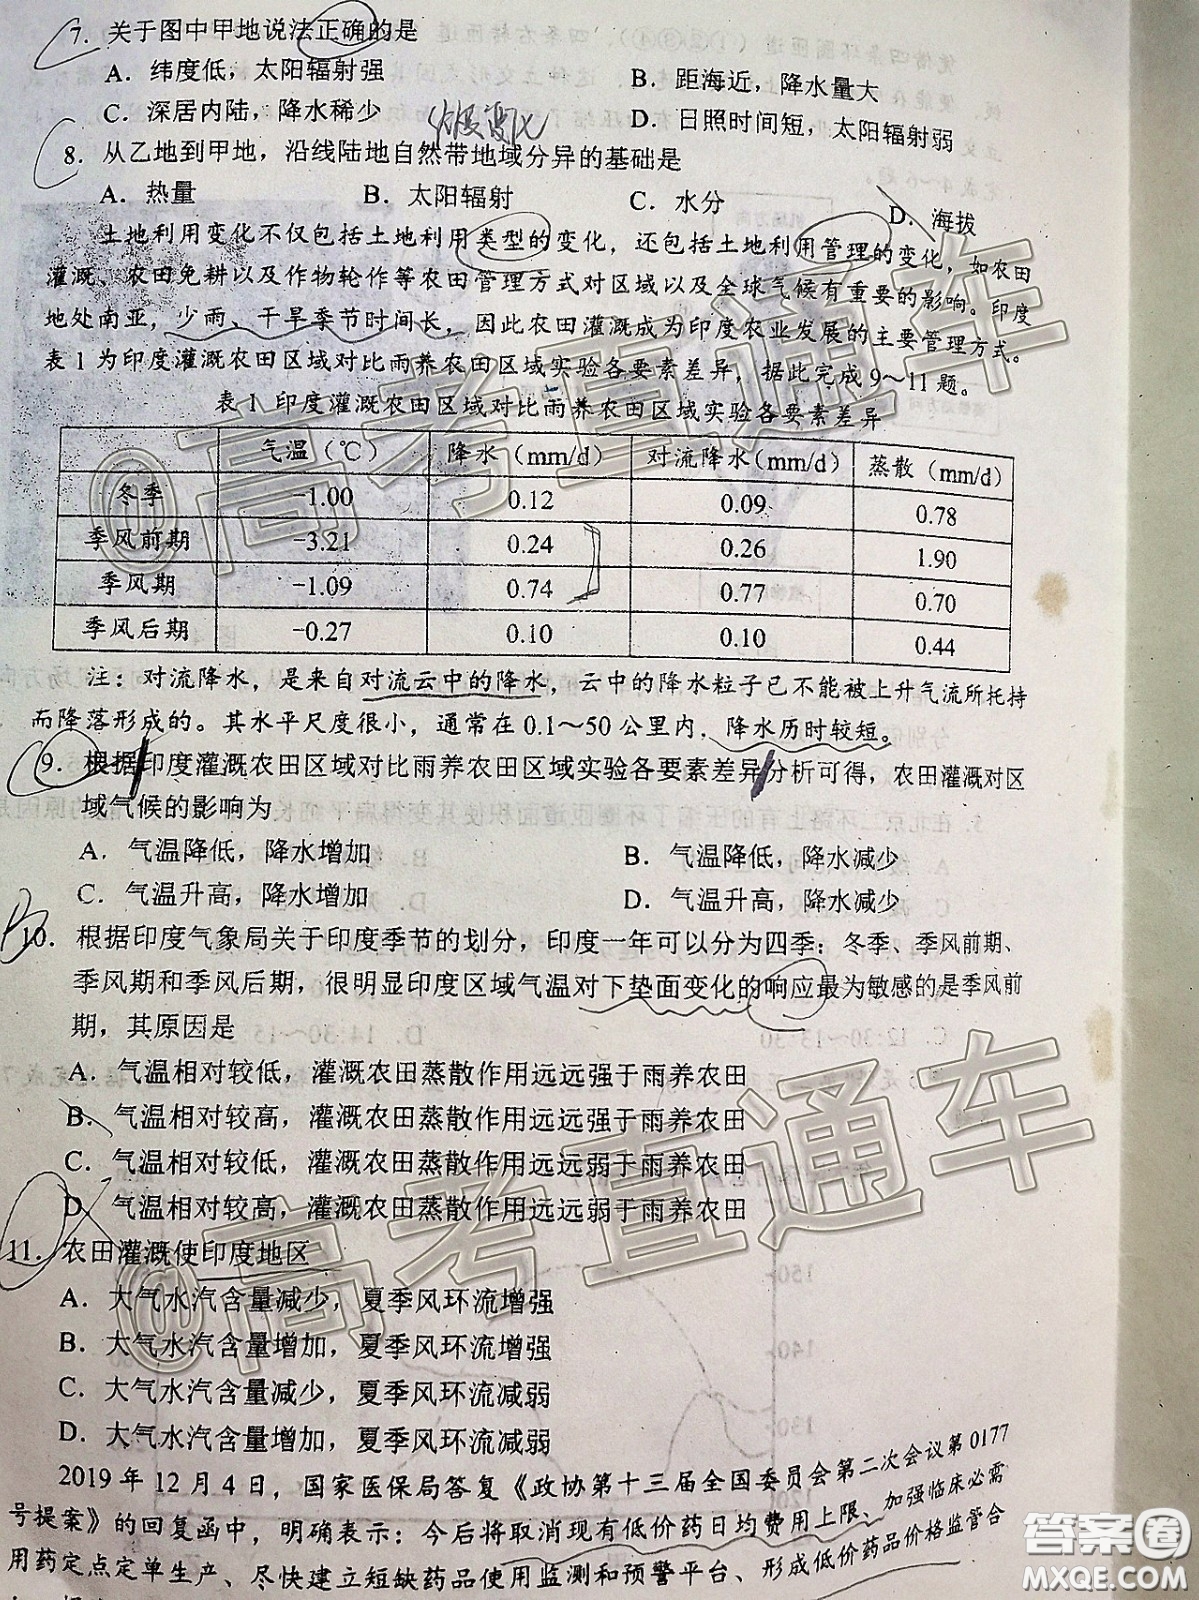 7. 关于图中甲地说法正确的是
A. 纬度低，太阳辐射强 B. 距海近，降水量大
C. 深居内陆，降水稀少 D. 日照时间短，太阳辐射弱
8. 从乙地到甲地，沿线陆地自然带地域分异的基础是
A. 热量 B. 太阳辐射 C. 水分 D. 海拔
土地利用变化不仅包括土地利用类型的变化，还包括土地利用管理的变化，如农田
灌溉、农田免耕以及作物轮作等农田管理方式对区域以及全球气候有重要的影响。印度
地处南亚，少雨、干旱季节时间长，因此农田灌溉成为印度农业发展的主要管理方式。
表1为印度灌溉农田区域对比雨养农田区域实验各要素差异，据此完成9～11题。
表1 印度灌溉农田区域对比雨养农田区域实验各要素差异
气温（℃） 降水（mm/d） 对流降水（mm/d） 蒸散（mm/d）
冬季 -1.00 0.12 0.09 0.78
季风前期 -3.21 0.24 0.26 1.90
季风期 -1.09 0.74 0.77 0.70
季风后期 -0.27 0.10 0.10 0.44
注：对流降水，是来自对流云中的降水，云中的降水粒子已不能被上升气流所托持
而降落形成的。其水平尺度很小，通常在0.1～50公里内，降水历时较短。
9. 根据印度灌溉农田区域对比雨养农田区域实验各要素差异分析可得，农田灌溉对区
域气候的影响为
A. 气温降低，降水增加 B. 气温降低，降水减少
C. 气温升高，降水增加 D. 气温升高，降水减少
10. 根据印度气象局关于印度季节的划分，印度一年可以分为四季：冬季、季风前期、
季风期和季风后期，很明显印度区域气温对下垫面变化的响应最为敏感的是季风前
期，其原因是
A. 气温相对较低，灌溉农田蒸散作用远远强于雨养农田
B. 气温相对较高，灌溉农田蒸散作用远远强于雨养农田
C. 气温相对较低，灌溉农田蒸散作用远远弱于雨养农田
D. 气温相对较高，灌溉农田蒸散作用远远弱于雨养农田
11. 农田灌溉使印度地区
A. 大气水汽含量减少，夏季风环流增强
B. 大气水汽含量增加，夏季风环流增强
C. 大气水汽含量减少，夏季风环流减弱
D. 大气水汽含量增加，夏季风环流减弱
2019年12月4日，国家医保局答复《政协第十三届全国委员会第二次会议第0177
号提案》的回复函中，明确表示：今后将取消现有低价药日均费用上限、加强临床必需
用药定点定单生产、尽快建立短缺药品使用监测和预警平台、形成低价药品价格监管合
@高考直通车
@高考直通车
答案圈
MXQE.COM